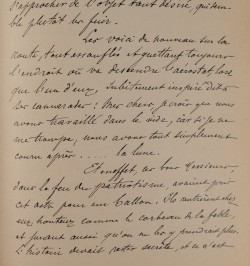 s'approcher de l'objet tant désiré, qui sem-
ble plutôt les fuir.
Les voici de nouveau sur la
route, tout essoufflés et guettant toujours
l'endroit où va descendre l'aérostat, lors
que l'un d'eux, subitement inspiré dit à
ses camarades : Mes chers, je crois que nous
avons travaillé dans le vide, car si je ne
me trompe, nous avons tout simplement
couru après ..... la lune.
En effet, ces bons Messieurs,
dans le feu du patriotisme, avaient pris
cet astre pour un Ballon. Ils rentrèrent chez
eux, honteux comme le corbeau de la fable,
et jurant aussi qu'on ne les y prendrait plus.
L'histoire devait rester secrète, et ce n'est